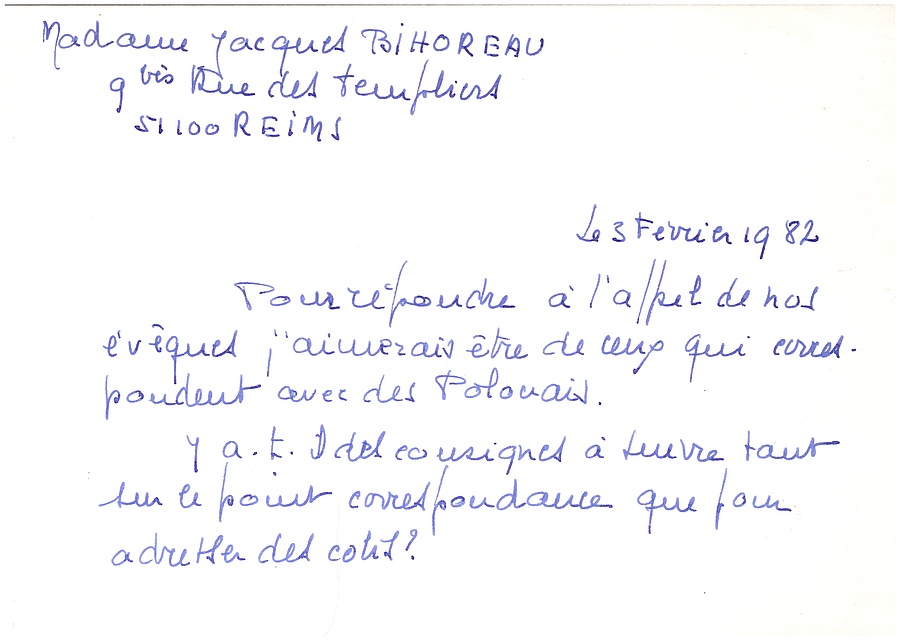 Madame Jacques BIHOREAU
9 bis Rue des Templiers
51100 REIMS
Le 3 Février 1982
Pour répondre à l'appel de nos
évêques j'aimerais être de ceux qui corres-
pondent avec des Polonais.
Y a.t.il des consignes à suivre tant
sur le point correspondance que pour
adresser des colis?